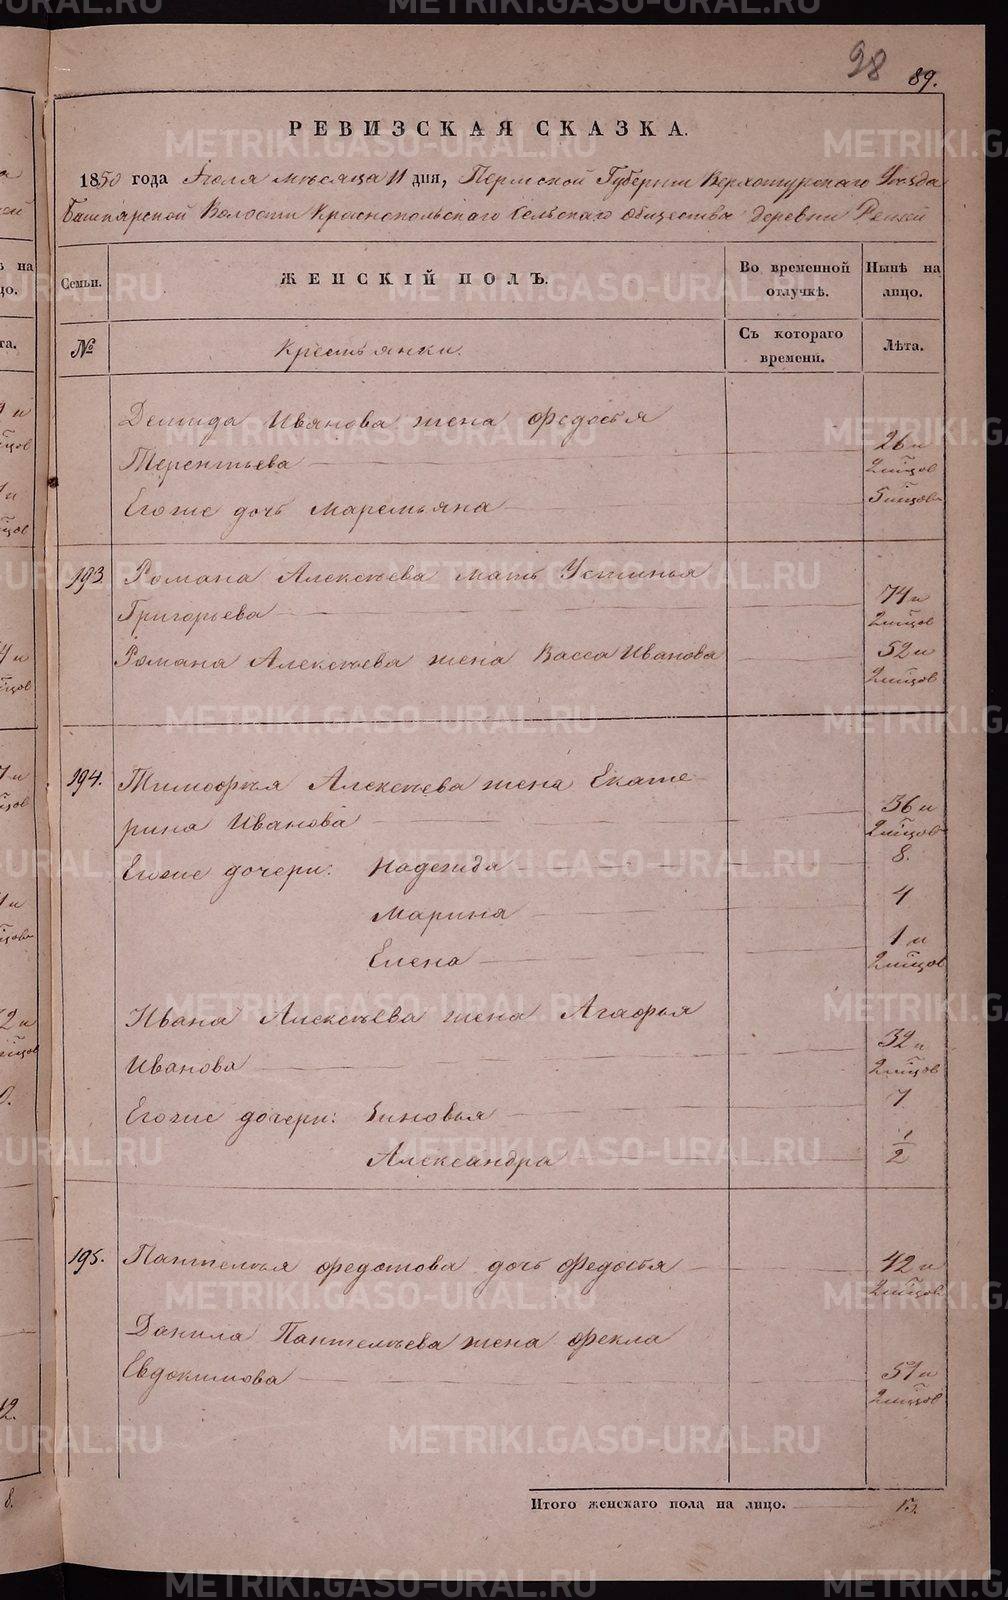 98
89.
РЕВИЗСКАЯ СКАЗКА.
1850 года Іюля мѣсяца 11 дня, Пермской Губерніи Верхотурскаго Уѣзда
Башкарской Волости Краснопольскаго Сельскаго общества деревни
Семьи.
ЖЕНСКІЙ ПОЛЪ.
Во временной отлучкѣ.
Нынѣ на лицо.
№
Крестьянки.
Съ котораго времени.
Лѣта.
Демида Иванова жена Федосья
Терентьева 26 и 2 мѣсцов
Егоже дочь Маремьяна 5 мѣсцовъ
193. Романа Алексѣева мать Устинья
Григорьева 74 и 2 мѣсцов
Романа Алексѣева жена Васса Иванова 52 и 2 мѣсцов
194. Тимофѣя Алексѣева жена Екате-
рина Иванова 36 и 2 мѣсцов
Егоже дочери: Надежда 8.
Марина 4
Елена 1 и 2 мѣсцов
Ивана Алексѣева жена Агафья
Иванова 32 и 2 мѣсцов
Егоже дочери: Зиновья 7
Александра 1/2
195. Пантелѣя Федотова дочь Федосья 42 и 2 мѣсцов
Данила Пантелѣева жена Фекла
Евдокимова 51 и 2 мѣсцов
Итого женскаго пола на лицо. 13.
METRIKI.GASO-URAL.RU